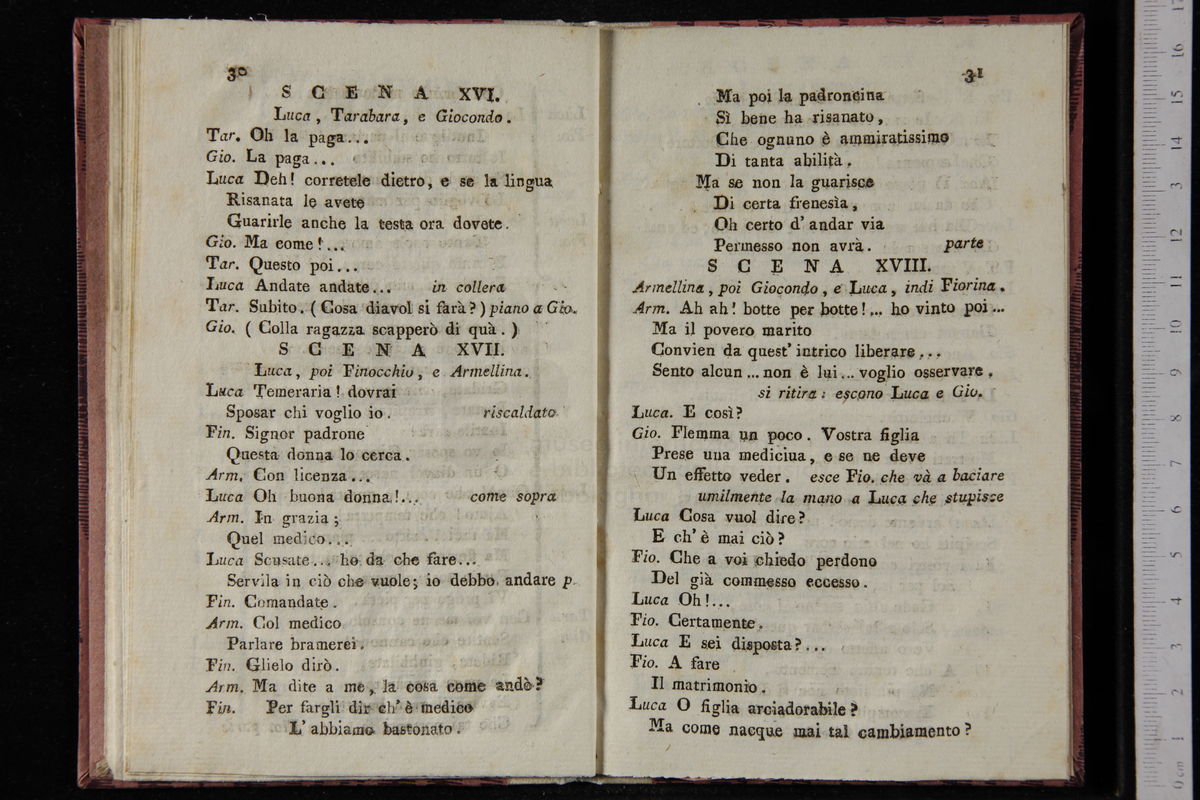 30
SCENA XVI.
Luca, Tarabara, e Giocondo.
Tar. Oh la paga...
Gio. La paga...
Luca Deh! corretele dietro, e se la lingua
Risanata le avete
Guarirle anche la testa ora dovete.
Gio. Ma come!...
Tar. Questo poi...
Luca Andate andate... in collera
Tar. Subito. (Cosa diavol si farà?) piano a Gio.
Gio. (Colla ragazza scapperò di quà.)
SCENA XVII.
Luca, poi Finocchio, e Armellina.
Luca Temeraria! dovrai
Sposar chi voglio io. riscaldato
Fin. Signor padrone
Questa donna lo cerca.
Arm. Con licenza...
Luca Oh buona donna!... come sopra
Arm. In grazia;
Quel medico...
Luca Scusate... ho da che fare...
Servila in ciò che vuole; io debbo andare p.
Fin. Comandate.
Arm. Col medico
Parlare bramerei.
Fin. Glielo dirò.
Arm. Ma dite a me, la cosa come andò?
Fin. Per fargli dir ch'è medico
L'abbiamo bastonato.
31
Ma poi la padroncina
Sì bene ha risanato,
Che ognuno è ammiratissimo
Di tanta abilità.
Ma se non la guarisce
Di certa frenesìa,
Oh certo d'andar via
Permesso non avrà. parte
SCENA XVIII.
Armellina, poi Giocondo, e Luca, indi Fiorina.
Arm. Ah ah! botte per botte!... ho vinto poi...
Ma il povero marito
Convien da quest'intrico liberare...
Sento alcun... non è lui... voglio osservare.
si ritira: escono Luca e Gio.
Luca. E così?
Gio. Flemma un poco. Vostra figlia
Prese una mediciua, e se ne deve
Un effetto veder. esce Fio. che và a baciare
umilmente la mano a Luca che stupisce
Luca Cosa vuol dire?
E ch'è mai ciò?
Fio. Che a voi chiedo perdono
Del già commesso eccesso.
Luca Oh!...
Fio. Certamente.
Luca E sei disposta?...
Fio. A fare
Il matrimonio.
Luca O figlia arciadorabile?
Ma come nacque mai tal cambiamento?
0 cm 1 2 3 4 5 6 7 8 9 10 11 12 13 14 15 16 17